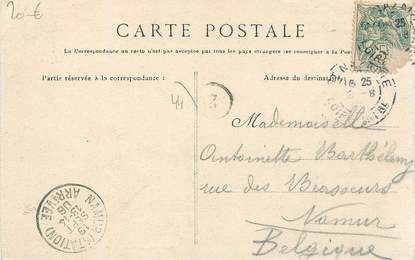 20-€
CARTE POSTALE
La Correspondance au recto n'est pas acceptée par tous les pays étrangers (se renseigner à la Poste)
Partie réservée à la correspondance. Adresse du destinataire.
44
Mademoiselle
Antoinette Barthélemy
rue des Brasseurs
Namur
Belgique
NAMUR (STATION)
ARRIVÉE